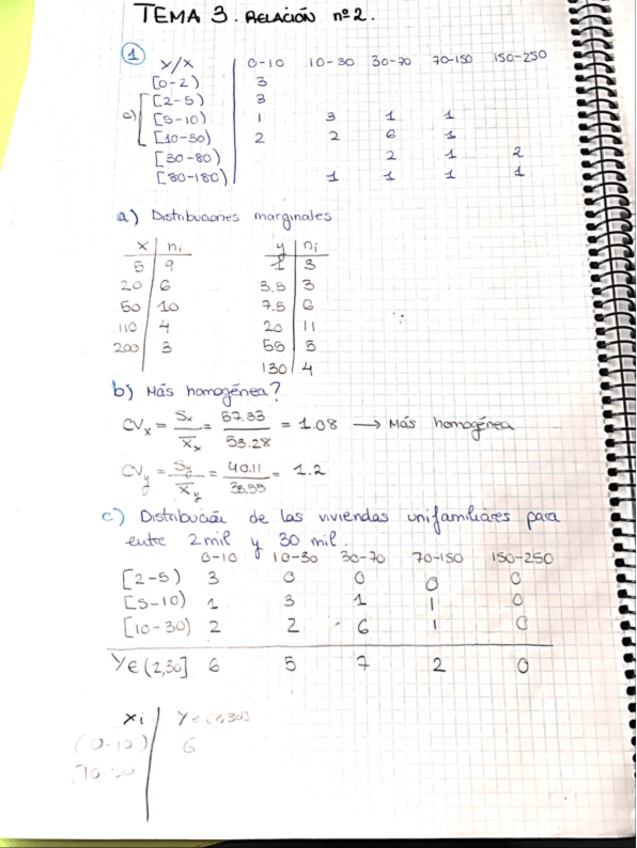 TEMA 3. RELACIÓN nº2.
1
Y/X 0-10 10-30 30-70 70-150 150-250
[0-2) 3
[2-5) 3
c) [5-10) 1 3 1 1
[10-30) 2 2 6 1
[30-80) 2 1 2
[80-180) 1 1 1 1
a) Distribuciones marginales
x ni y ni
5 9 1 3
20 6 3.5 3
50 10 7.5 6
110 4 20 11
200 3 55 5
130 4
b) Más homogénea?
CVx = Sx / Xx = 57.33 / 53.28 = 1.08 → Más homogénea
CVy = Sy / Xy = 40.11 / = 1.2
c) Distribución de las viviendas unifamiliares para
entre 2mil y 30 mil.
0-10 10-30 30-70 70-150 150-250
[2-5) 3 0 0 0 0
[5-10) 1 3 1 1 0
[10-30) 2 2 6 1 0
YE(2,30] 6 5 7 2 0
xi YE(2,30]
(0-10) 6